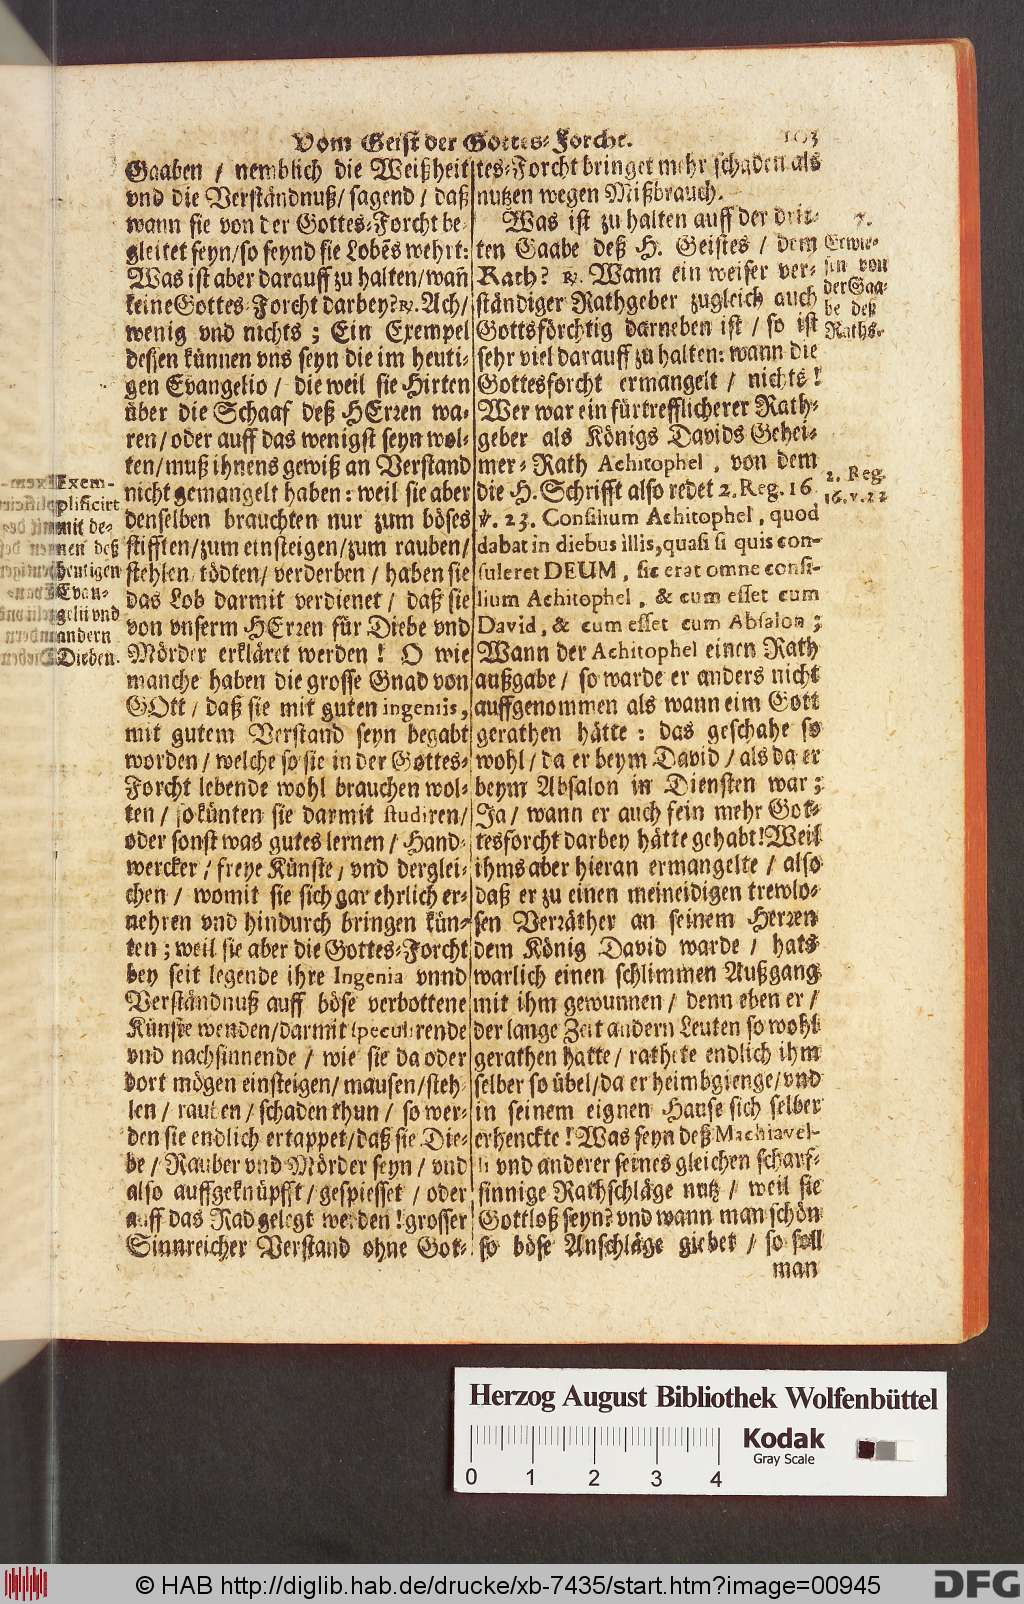 Vom Geist der Gottes-Forcht. 103
Gaaben / nemblich die Weißheit
vnd die Verständnuß / sagend / daß
wann sie von der Gottes-Forcht be-
gleitet seyn / so seynd sie Lobēs wehrt:
Was ist aber darauff zu halten / wañ
keine Gottes-Forcht darbey? ℟. Ach /
wenig vnd nichts ; Ein Exempel
dessen künnen vns seyn die im heuti-
gen Evangelio / die weil sie Hirten
über die Schaaf deß HErren wa-
ren / oder auff das wenigst seyn wol-
ten / muß ihnens gewiß an Verstand
nicht gemangelt haben : weil sie aber
denselben brauchten nur zum böses
stifften / zum einsteigen / zum rauben /
stehlen / tödten / verderben / haben sie
das Lob darmit verdienet / daß sie
von vnserm HErren für Diebe vnd
Mörder erkläret werden ! O wie
manche haben die grosse Gnad von
GOtt / daß sie mit guten ingeniis,
mit gutem Verstand seyn begabt
worden / welche so sie in der Gottes-
Forcht lebende wohl brauchen wol-
ten / so künten sie darmit studiren /
oder sonst was gutes lernen / Hand-
wercker / freye Künste / vnd derglei-
chen / womit sie sich gar ehrlich er-
nehren vnd hindurch bringen kün-
ten ; weil sie aber die Gottes-Forcht
bey seit legende ihre Ingenia vnnd
Verständnuß auff böse verbottene
Künste wenden / darmit speculirende
vnd nachsinnende / wie sie da oder
dort mögen einsteigen / mausen / steh-
len / rauben / schaden thun / so wer-
den sie endlich ertappet / daß sie Die-
be / Rauber vnd Mörder seyn / vnd
also auffgeknüpfft / gespiesset / oder
auff das Rad gelegt werden ! grosser
Sinnreicher Verstand ohne Got-
Exem-
plificirt
mit de-
nen deß
heutigen
Evan-
gelii vnd
andern
Dieben.
tes-Forcht bringet mehr schaden als
nutzen wegen Mißbrauch.
Was ist zu halten auff der drit-
ten Gaabe deß H. Geistes / dem
Rath? ℟. Wann ein weiser ver-
ständiger Rathgeber zugleich auch
Gottsförchtig darneben ist / so ist
sehr viel darauff zu halten : wann die
Gottesforcht ermangelt / nichts !
Wer war ein fürtrefflicherer Rath-
geber als Königs Davids Gehei-
mer-Rath Achitophel, von dem
die H. Schrifft also redet 2. Reg. 16
℣. 23. Consilium Achitophel, quod
dabat in diebus illis, quasi si quis con-
suleret DEUM, sic erat omne consi-
lium Achitophel, & cum esset cum
David, & cum esset cum Absalon ;
Wann der Achitophel einen Rath
außgabe / so warde er anders nicht
auffgenommen als wann eim Gott
gerathen hätte : das geschahe so
wohl / da er beym David / als da er
beym Absalon in Diensten war ;
Ja / wann er auch fein mehr Got-
tesforcht darbey hätte gehabt ! Weil
ihms aber hieran ermangelte / also
daß er zu einen meineidigen trewlo-
sen Verräther an seinem Herren
dem König David warde / hats
warlich einen schlimmen Außgang
mit ihm gewunnen / denn eben er /
der lange Zeit andern Leuten so wohl
gerathen hatte / rathete endlich ihm
selber so übel / da er heimbgienge / vnd
in seinem eignen Hause sich selber
erhenckte ! Was seyn deß Machiavel-
li vnd anderer seines gleichen scharf-
sinnige Rathschläge nutz / weil sie
Gottloß seyn? vnd wann man schön
so böse Anschläge giebet / so soll
man
7.
Erwie-
sen von
der Gaa-
be deß
Raths.
2. Reg.
16. v. 22
Herzog August Bibliothek Wolfenbüttel
0 1 2 3 4
Kodak
Gray Scale
© HAB http://diglib.hab.de/drucke/xb-7435/start.htm?image=00945
DFG